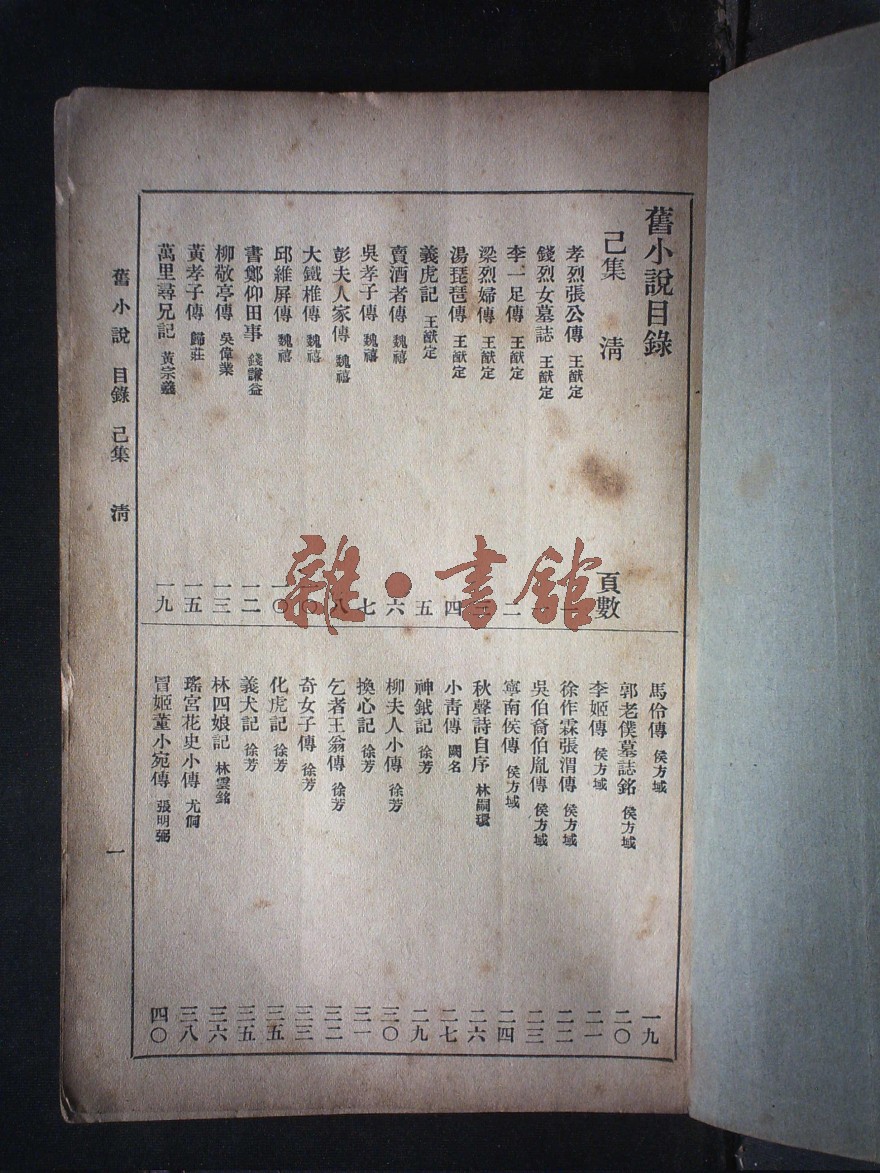 舊小說目錄
己集 清 頁數
孝烈張公傳 王猷定 一
錢烈女墓誌 王猷定
李一足傳 王猷定 二
梁烈婦傳 王猷定
湯琵琶傳 王猷定 四
義虎記 王猷定 五
賣酒者傳 魏禧 六
吳孝子傳 魏禧 七
彭夫人家傳 魏禧 八
大鐵椎傳 魏禧
邱維屏傳 魏禧 一〇
書鄭仰田事 錢謙益 一二
柳敬亭傳 吳偉業 一三
黃孝子傳 歸莊 一五
萬里尋兄記 黃宗羲 一九
馬伶傳 侯方域 一九
郭老僕墓誌銘 侯方域 二〇
李姬傳 侯方域 二一
徐作霖張渭傳 侯方域 二二
吳伯裔伯胤傳 侯方域 二三
寧南侯傳 侯方域 二四
秋聲詩自序 林嗣環 二六
小青傳 闕名 二七
神鉞記 徐芳 二九
柳夫人小傳 徐芳 三〇
換心記 徐芳 三一
乞者王翁傳 徐芳 三二
奇女子傳 徐芳 三三
化虎記 徐芳 三五
義犬記 徐芳 三五
林四娘記 林雲銘 三六
瑤宮花史小傳 尤侗 三八
冒姬董小宛傳 張明弼 四〇
舊小說 目錄 己集 清 一
雜·書館